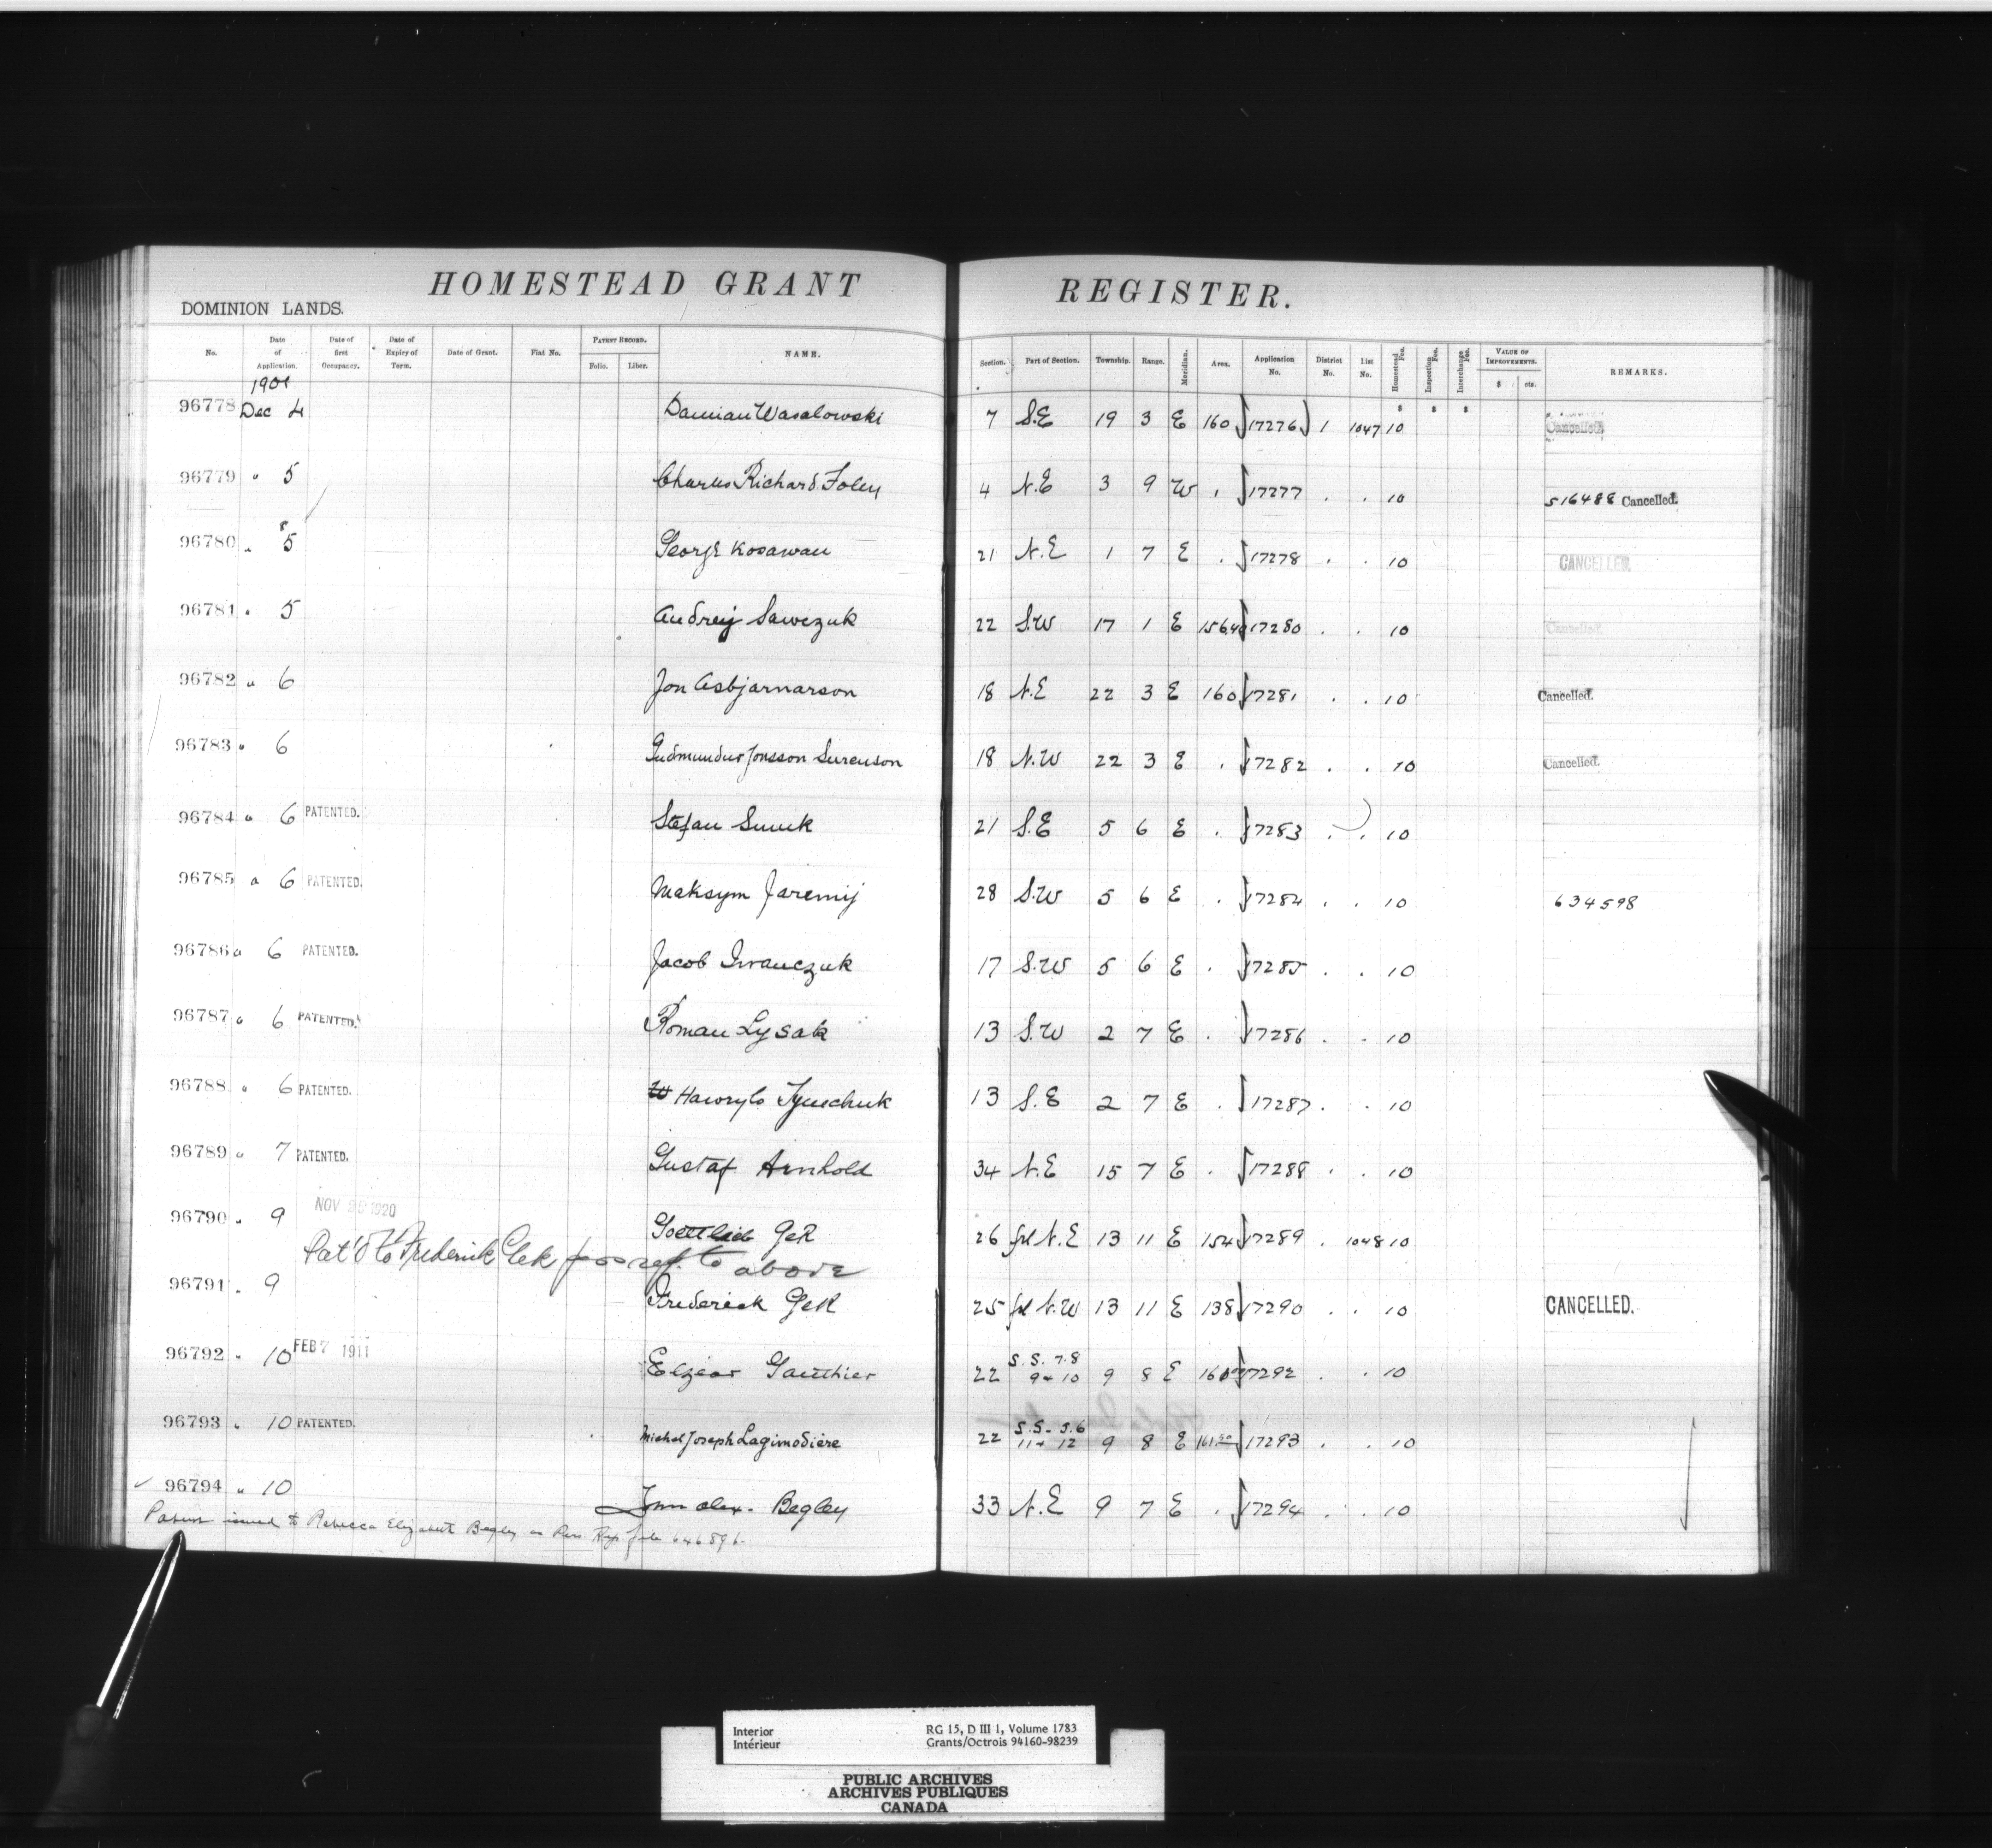 HOMESTEAD GRANT REGISTER.
DOMINION LANDS.
No. Date of Application. Date of first Occupancy. Date of Expiry of Term. Date of Grant. Fiat No. PATENT RECORD. Folio. Liber. NAME. Section. Part of Section. Township. Range. Meridian. Area. Application No. District No. List No. Homestead Fee. Inspection Fee. Interchange Fee. VALUE OF IMPROVEMENTS. $ cts. REMARKS.
1901
96778 Dec 4 Damian Wasalowski 7 S.E 19 3 E 160 17276 1 1047 10 Cancelled.
96779 " 5 Charles Richard Foley 4 N.E 3 9 W . 17277 . . 10 516488 Cancelled.
96780 " 5 George Kosawan 21 N.E 1 7 E . 17278 . . 10 CANCELLED.
96781 " 5 Andreij Sawczuk 22 S.W 17 1 E 156.40 17280 . . 10 Cancelled.
96782 " 6 Jon Asbjarnarson 18 N.E 22 3 E 160 17281 . . 10 Cancelled.
96783 " 6 Gudmundur Jonsson Surenson 18 N.W 22 3 E . 17282 . . 10 Cancelled.
96784 " 6 PATENTED. Stefan 21 S.E 5 6 E . 17283 . . 10
96785 " 6 PATENTED. Maksym Jaremij 28 S.W 5 6 E . 17284 . . 10 634598
96786 " 6 PATENTED. Jacob Iwanczuk 17 S.W 5 6 E . 17285 . . 10
96787 " 6 PATENTED. Roman Lysak 13 S.W 2 7 E . 17286 . . 10
96788 " 6 PATENTED. Hawrylo Tymchuk 13 S.E 2 7 E . 17287 . . 10
96789 " 7 PATENTED. Gustaf Arnhold 34 N.E 15 7 E . 17288 . . 10
96790 " 9 NOV 25 1920 Gottlieb Gek 26 frl N.E 13 11 E 154 17289 . 1048 10
Pat'd to Frederick Gek for ref. to above
96791 " 9 Frederick Gek 25 frl N.W 13 11 E 138 17290 . . 10 CANCELLED.
96792 " 10 FEB 7 1911 Elzear Gauthier 22 S.S. 7.8 9 & 10 9 8 E 17292 . . 10
96793 " 10 PATENTED. Michel Joseph Lagimodiere 22 S.S. 5.6 11 & 12 9 8 E 17293 . . 10
96794 " 10 Jno Alex. Begley 33 N.E 9 7 E . 17294 . . 10
Patent issued to Rebecca Elizabeth Begley as Pers. Rep. file 646896.
Interior RG 15, D III 1, Volume 1783
Intérieur Grants/Octrois 94160-98239
PUBLIC ARCHIVES
ARCHIVES PUBLIQUES
CANADA